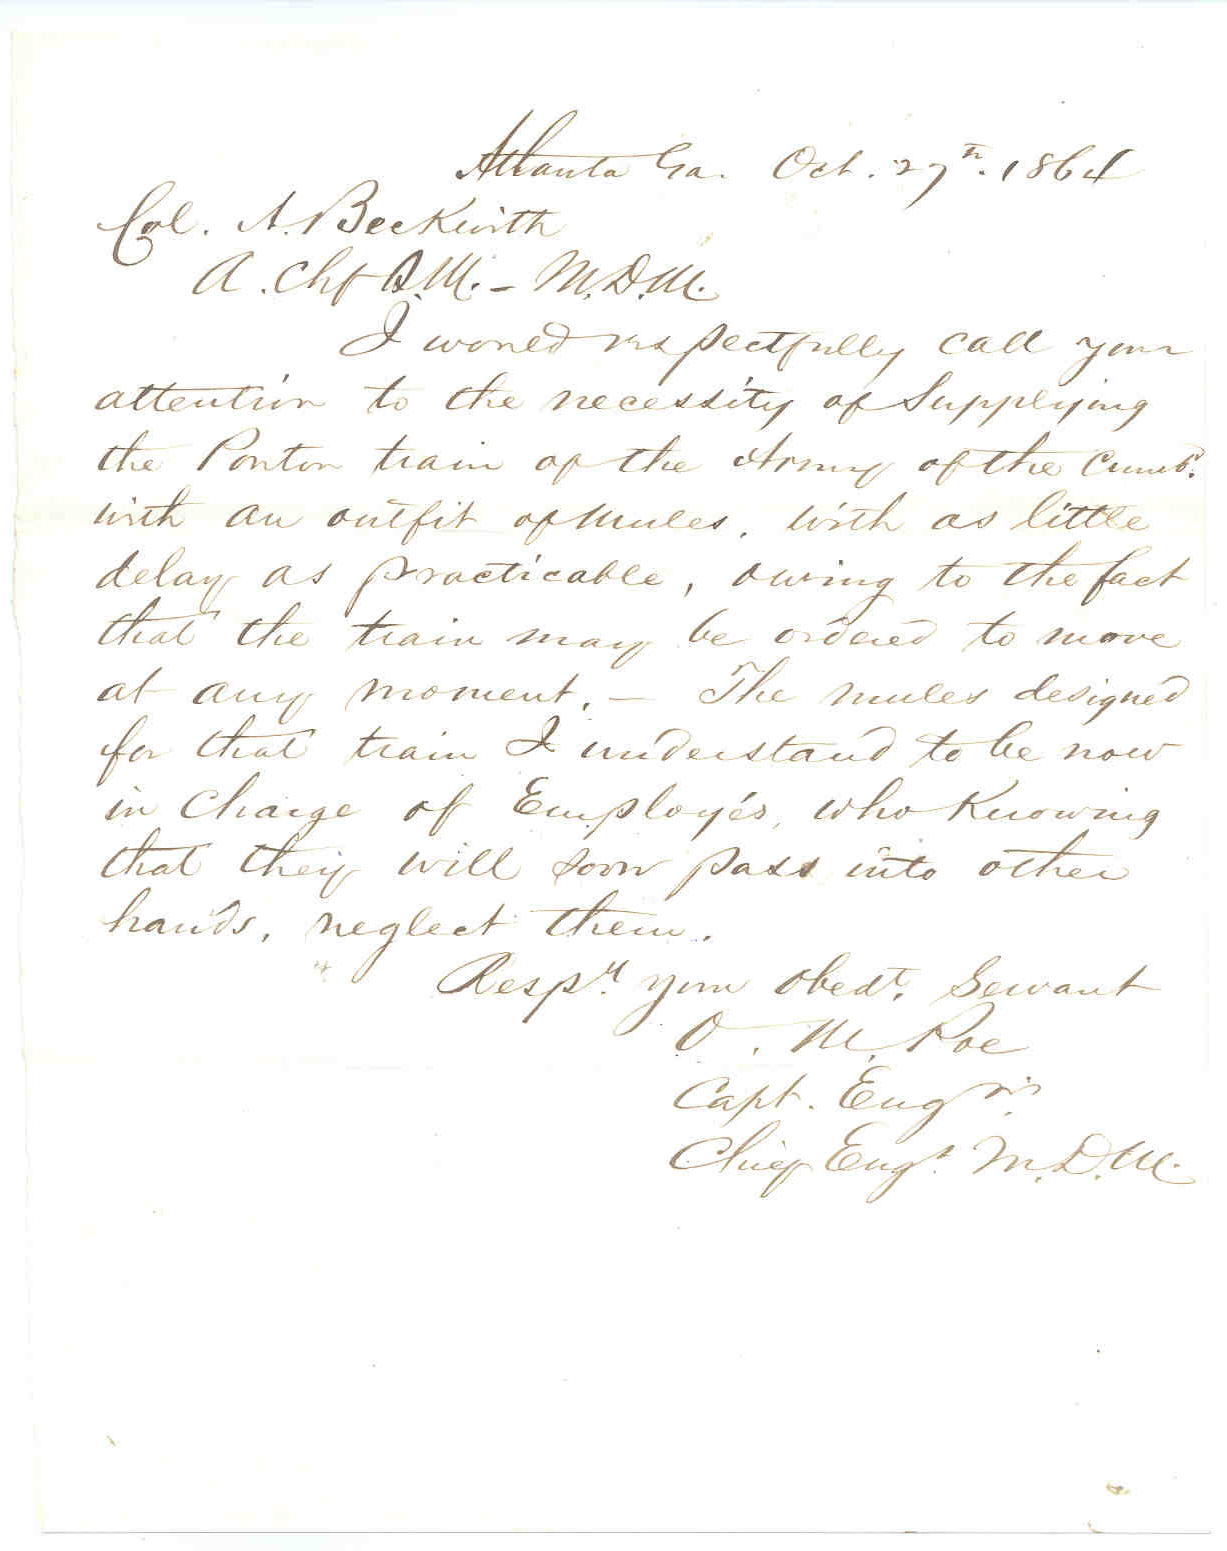 Atlanta Ga. Oct. 27th. 1864
Col. A. Beckwith
A. Chf Q.M. - M.D.M.
I would respectfully call your
attention to the necessity of Supplying
the Ponton train of the Army of the Cumbd.
with an outfit of mules, with as little
delay as practicable, owing to the fact
that the train may be ordered to move
at any moment. - The mules designed
for that train I understand to be now
in charge of Employés, who knowing
that they will soon pass into other
hands, neglect them.
Respy. your obedt. Servant
O. M. Poe
Capt. Engrs.
Chief Engr. M.D.M.